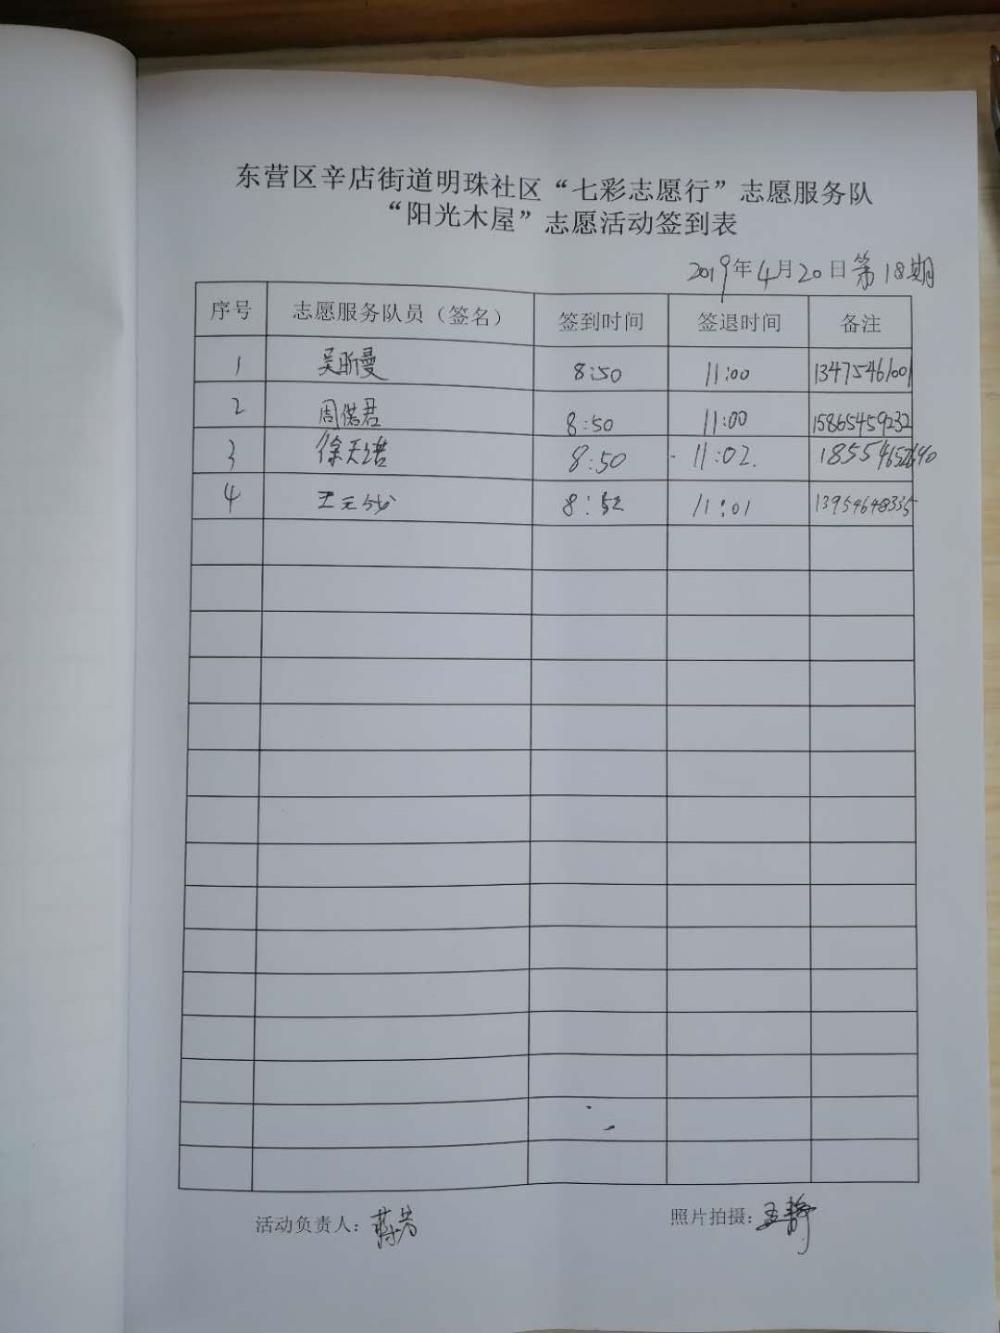 东营区辛店街道明珠社区“七彩志愿行”志愿服务队
“阳光木屋”志愿活动签到表
2019年4月20日第18期
序号 志愿服务队员（签名） 签到时间 签退时间 备注
1 吴昕曼 8:50 11:00 13475461001
2 周偌君 8:50 11:00 15865459232
3 徐天 8:50 11:02.
4 王元 8:52 11:01 13954648335
活动负责人：蒋芳 照片拍摄：孟静